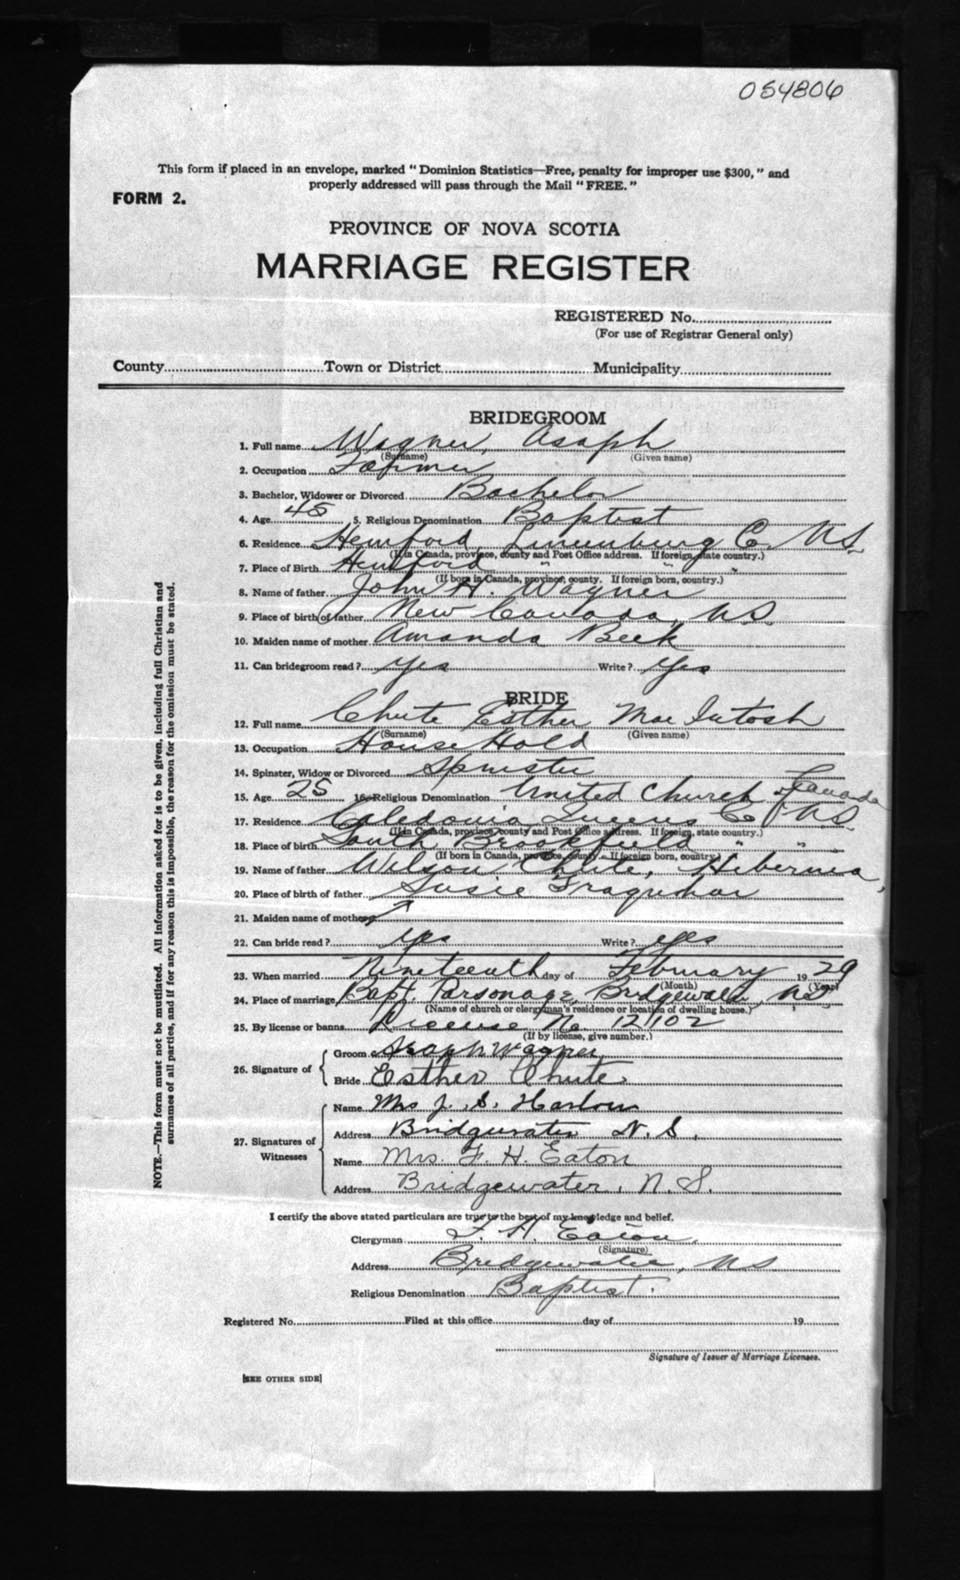 054806
This form if placed in an envelope, marked "Dominion Statistics—Free, penalty for improper use $300," and
properly addressed will pass through the Mail "FREE."
FORM 2.
PROVINCE OF NOVA SCOTIA
MARRIAGE REGISTER
REGISTERED No.
(For use of Registrar General only)
County Town or District Municipality
BRIDEGROOM
1. Full name Wagner, Asaph
(Surname) (Given name)
2. Occupation Farmer
3. Bachelor, Widower or Divorced Bachelor
4. Age 45 5. Religious Denomination Baptist
6. Residence Hemford, Lunenburg Co. N.S.
(If in Canada, province, county and Post Office address. If foreign, state country.)
7. Place of Birth Hemford " " "
(If born in Canada, province, county. If foreign born, country.)
8. Name of father John H. Wagner
9. Place of birth of father New Canada, N.S.
10. Maiden name of mother Amanda Beck
11. Can bridegroom read? yes Write? yes
BRIDE
12. Full name Chute Esther MacIntosh
(Surname) (Given name)
13. Occupation House Hold
14. Spinster, Widow or Divorced Spinster
15. Age 25 16. Religious Denomination United Church of Canada
17. Residence Caledonia Queens Co N.S.
(If in Canada, province, county and Post Office address. If foreign, state country.)
18. Place of birth South Brookfield " " "
(If born in Canada, province, county. If foreign born, country.)
19. Name of father Wilson Chute, Hibernia,
20. Place of birth of father Susie Fraquhar
21. Maiden name of mother
22. Can bride read? yes Write? yes
23. When married Nineteenth day of February 1929
(Month) (Year)
24. Place of marriage Bapt. Parsonage, Bridgewater, N.S.
(Name of church or clergyman's residence or location of dwelling house.)
25. By license or banns License No. 12102
(If by license, give number.)
26. Signature of { Groom Asaph Wagner
Bride Esther Chute
27. Signatures of Witnesses { Name Mrs J. S. Harlow
Address Bridgewater N.S.
Name Mrs. F. H. Eaton
Address Bridgewater, N.S.
I certify the above stated particulars are true to the best of my knowledge and belief.
Clergyman F. H. Eaton
(Signature)
Address Bridgewater, N.S
Religious Denomination Baptist.
Registered No. Filed at this office day of 19
Signature of Issuer of Marriage Licenses.
[SEE OTHER SIDE]
NOTE.—This form must not be mutilated. All information asked for is to be given, including full Christian and
surnames of all parties, and if for any reason this is impossible, the reason for the omission must be stated.